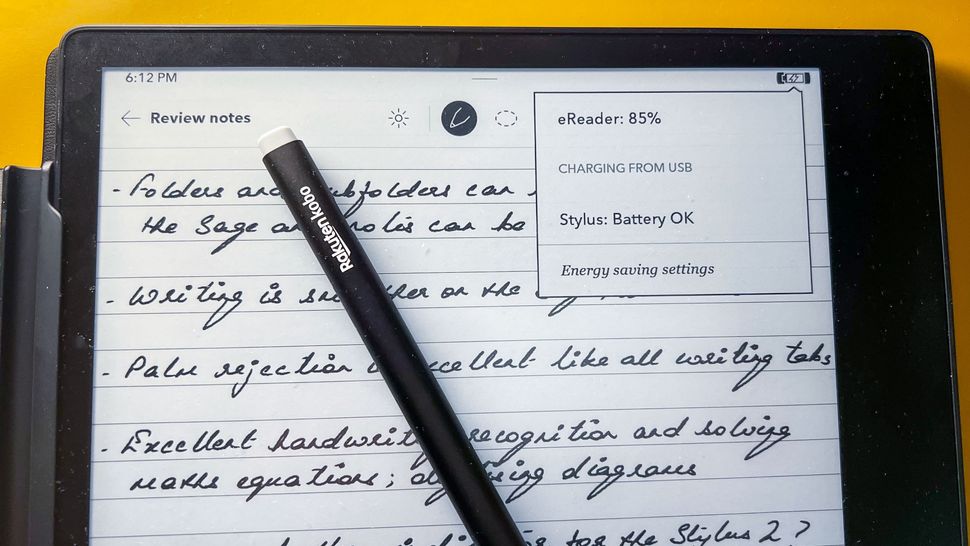 6:12 PM
Review notes
eReader: 85%
CHARGING FROM USB
Stylus: Battery OK
Energy saving settings
Rakuten kobo
- Folders and subfolders can
the Sage and can be
- Writing is smoother on the
- Palm rejection excellent like all writing tabs
- Excellent handwriting recognition and solving
maths equations; digitising diagrams
for the Stylus 2?